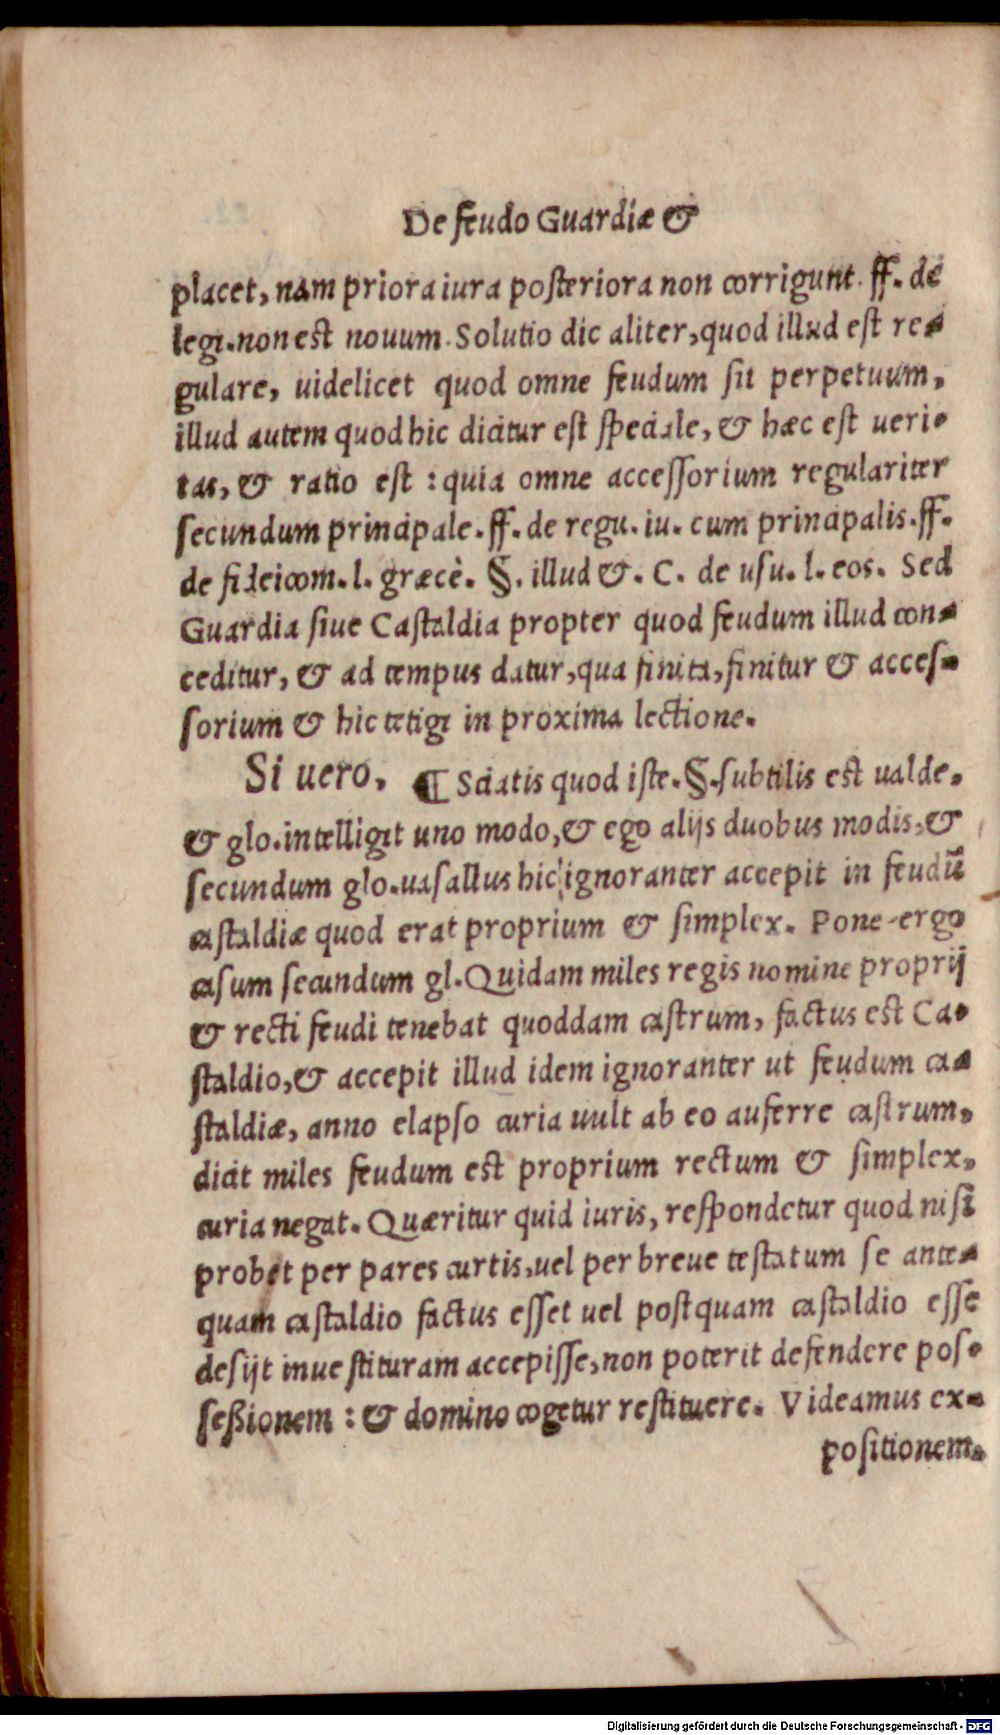 De feudo Guardiæ &
placet, nam priora iura posteriora non corrigunt. ff. de
legi. non est novum. Solutio dic aliter, quod illud est re-
gulare, uidelicet quod omne feudum sit perpetuum,
illud autem quod hic dicitur est speciale, & hæc est ueri-
tas, & ratio est : quia omne accessorium regulariter
secundum principale. ff. de regu. iu. cum principalis. ff.
de fideicom. l. græcè. §. illud &. C. de usu. l. eos. Sed
Guardia siue Castaldia propter quod feudum illud con-
ceditur, & ad tempus datur, qua finita, finitur & acces-
sorium & hic tetigi in proxima lectione.
Si uero. ¶ Sciatis quod iste. §. subtilis est ualde.
& glo. intelligit uno modo, & ego alijs duobus modis, &
secundum glo. uasallus hic ignoranter accepit in feudũ
castaldiæ quod erat proprium & simplex. Pone ergo
casum secundum gl. Quidam miles regis nomine proprij
& recti feudi tenebat quoddam castrum, factus est Ca-
staldio, & accepit illud idem ignoranter ut feudum ca-
staldiæ, anno elapso curia uult ab eo auferre castrum,
dicit miles feudum est proprium rectum & simplex,
curia negat. Quæritur quid iuris, respondetur quod nisi
probet per pares curtis, uel per breue testatum se ante-
quam castaldio factus esset uel postquam castaldio esse
desijt inuestituram accepisse, non poterit defendere pos-
seßionem : & domino cogetur restituere. Videamus ex-
positionem.
Digitalisierung gefördert durch die Deutsche Forschungsgemeinschaft - DFG